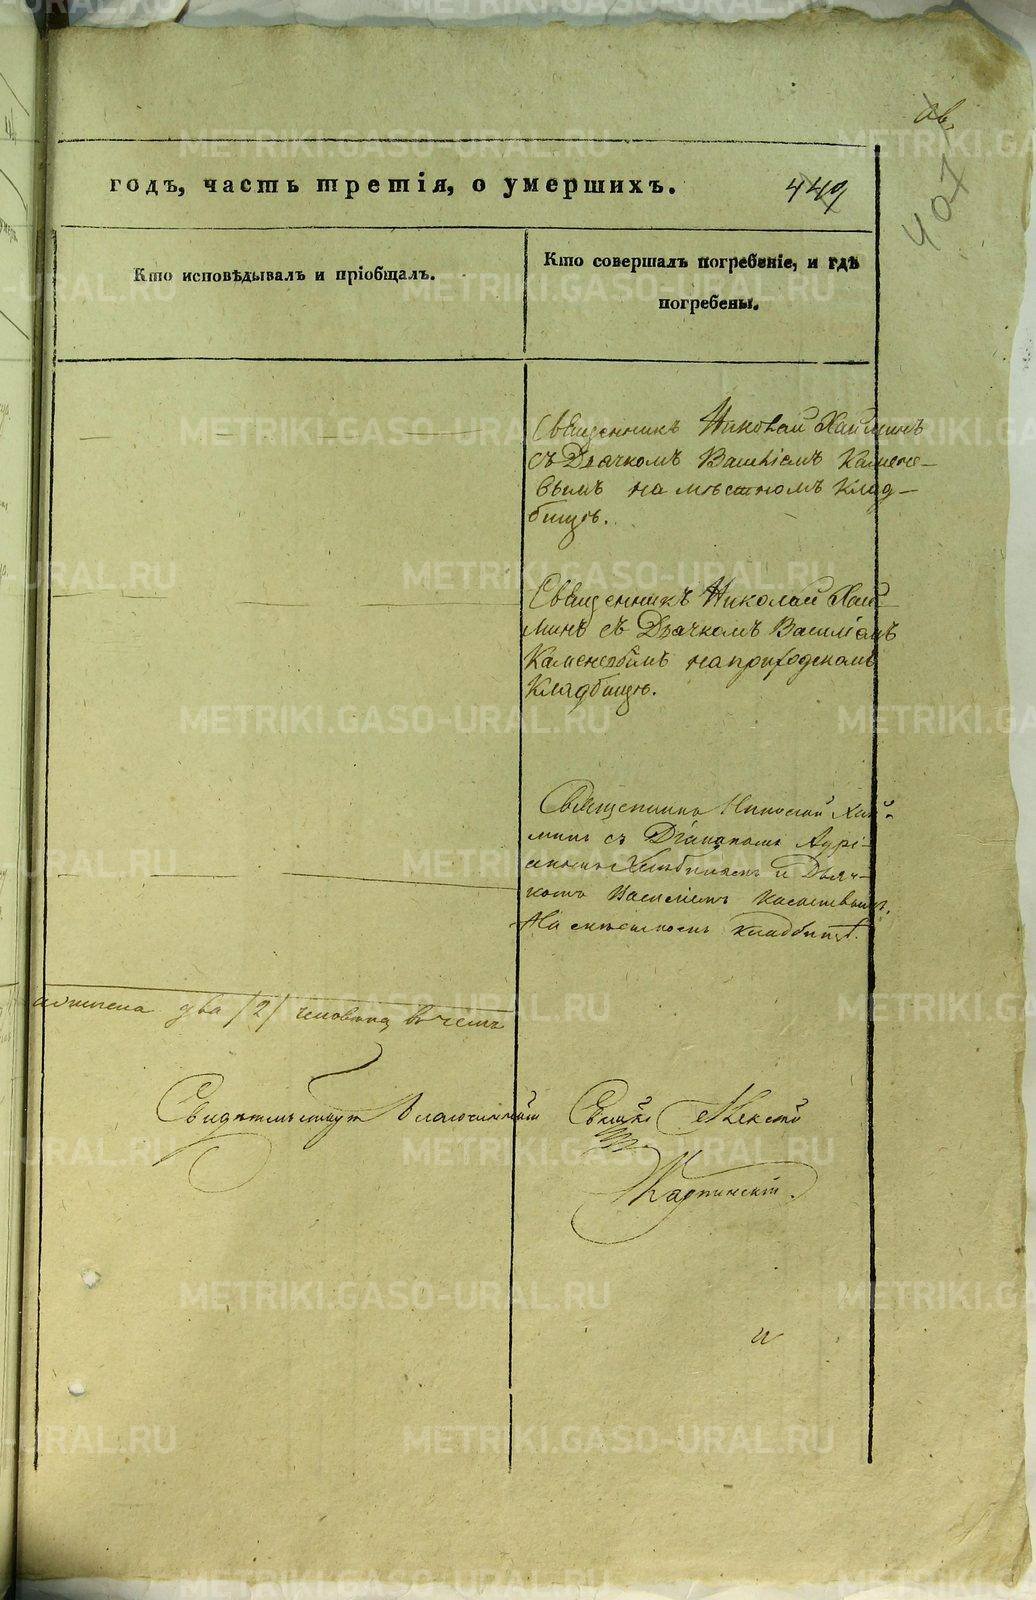 годъ, часть третія, о умершихъ.
449
407
Кто исповѣдывалъ и пріобщалъ.
Кто совершалъ погребеніе, и гдѣ
погребены.
Священникъ Николай Хайминъ
съ Дьячкомъ Василіемъ Камене-
вымъ на мѣстномъ клад-
бищѣ.
Священникъ Николай Хай-
минъ съ Дьячкомъ Василіемъ
Каменевымъ на приходскомъ
Кладбищѣ.
Священникъ Николай Хай-
минъ съ Діакономъ
и Дьяч-
комъ Василіемъ
На мѣстномъ кладбищѣ.
два /2/ человека, в чемъ
Свидѣтельствую
METRIKI.GASO-URAL.RU